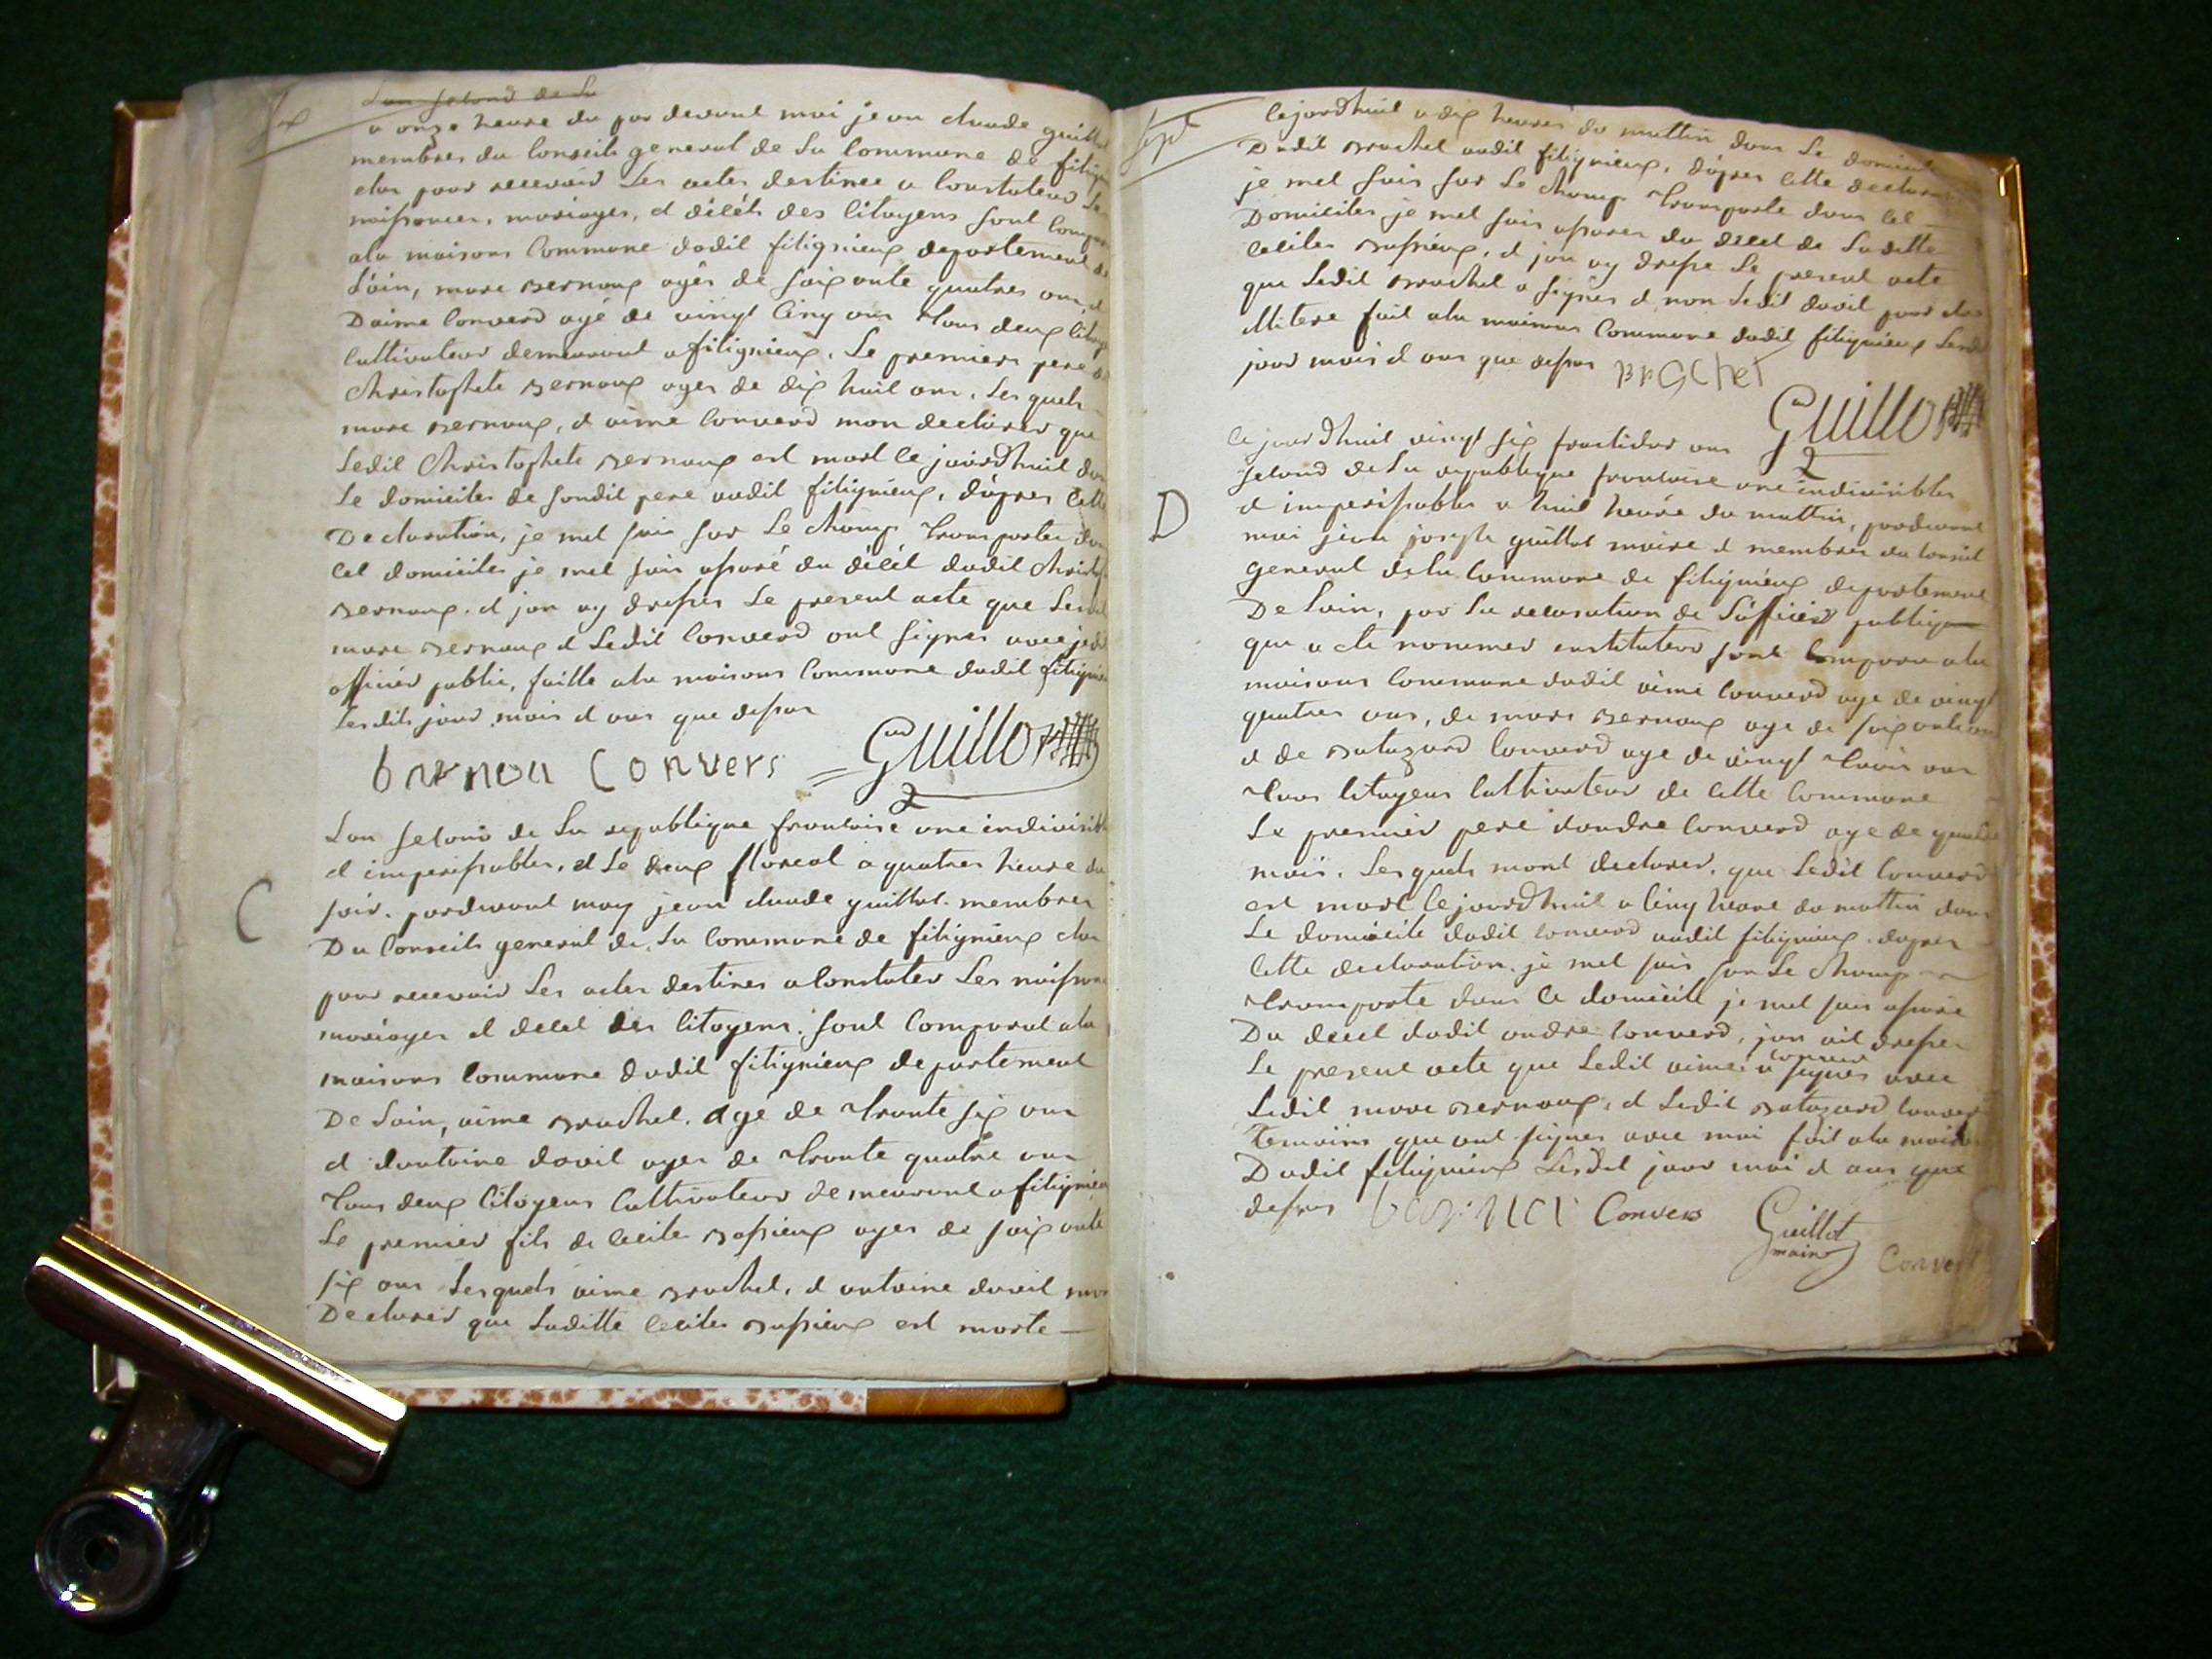 six
Lan second de La
a onze heure du par devant moi jean claude guillot
membres du Conseils general de La Commune de filign
elus pour recevoir Les actes destinee a Constater Les
naissances, mariages, et décéts des Citoyens sont Comparu
ala maisons Commune dudit filignieux departement de
L'ain, marc Bernoux agés de soixante quatres ans, et
Daime Converd agé de vingt Cinq ans tous deux Citoy
Cultivateur demeurant a filignieux. Le premiers pere de
Christophete Bernoux ages de dix huit ans. Lesquels
marc Bernoux, et aime Converd mon declarer que
Ledit Christophete Bernoux est mort Ce jourdhuit dans
Le domiciles de sondit pere audit filignieux, d'apres Cette
Declaration, je met suis sur Le champ transporter dans
Cet domiciles je met suis assuré du décét dudit Christop
Bernoux. et jan ay dresser Le present acte que Ledit
marc Bernoux et Ledit Converd ont signer avec je dit
officier public, faitte ala maisons Commune dudit filignieu
Lesdits jour mois et ans que dessus
barnou Convers Guillot
C
Lan second de La republique francaise une indivisible
et imperissables, et Le deux floreal a quatres heure du
soir. pardevant moy jean claude guillot. membres
Du Conseils general de La Commune de filignieux elus
pour recevoir Les actes destines a Constater Les naissance
mariages et decet des Citoyens. sont Comparut ala
maisons Commune dudit filignieux departement
De Lain, aime Brachet. agé de trante six ans
et dantoine davit ages de trante quatre ans
tous deux Citoyens Cultivateur demeurant a filignieux
Le premier fils de Cecile Bassieux ages de soixante
six ans Lesquels aime Brachet, et antoine davit mon
Declarer que Laditte Cecile Bassieux est morte
sept
Cejourdhuit a dix heures du mattin dans Le domicile
Dudit Brachet audit filignieux, d'apres Cette declaration
je met suis sur Le champ transporte dans Cet
Domiciles je met suis assures du decet de Laditte
Ceciles Bassieux, et jan ay dresse Le present acte
que Ledit Brachet a signer et non Ledit davit pour etre
illitere fait ala maisons Commune dudit filignieux Lesdit
jour mois et ans que dessus BRACHET
Guillot
D
Ce jourdhuit vingt six fructidor ans
second de La republique francaise une indivisibles
et imperissables a huit heure du mattin, pardevant
moi jean joseph guillot maire et membres du Conseil
general dela Commune de filignieux departement
De Lain, par La recusation de Lofficier publique
que a ete nommer enstituteur sont Comparu ala
maisons Commune dudit aimé Converd age de vingt
quatres ans, de marc Bernoux age de soixante ans
et de Batazard Converd age de vingt trois ans
tous Citoyens Cultivateur de Cette Commune
Le premier pere dandre Converd age de quatre
mois. Lesquels mont declarer, que Ledit Converd
est mort Cejourdhuit a Cinq heure du mattin dans
Le domicile dudit Converd audit filignieux. dapres
Cette declaration. je met suis sur Le champ
transporte dans Ce domicile je met suis assure
Du decet dudit andre Converd, jan ait dresse
Le present acte que Ledit aime Converd a signer avec
Ledit marc Bernoux, et Ledit Batazard Converd
temoins que ont signer avec moi fait ala maison
Dudit filignieux Lesdit jour moi et ans que
dessus Convers Guillot
maire Convert